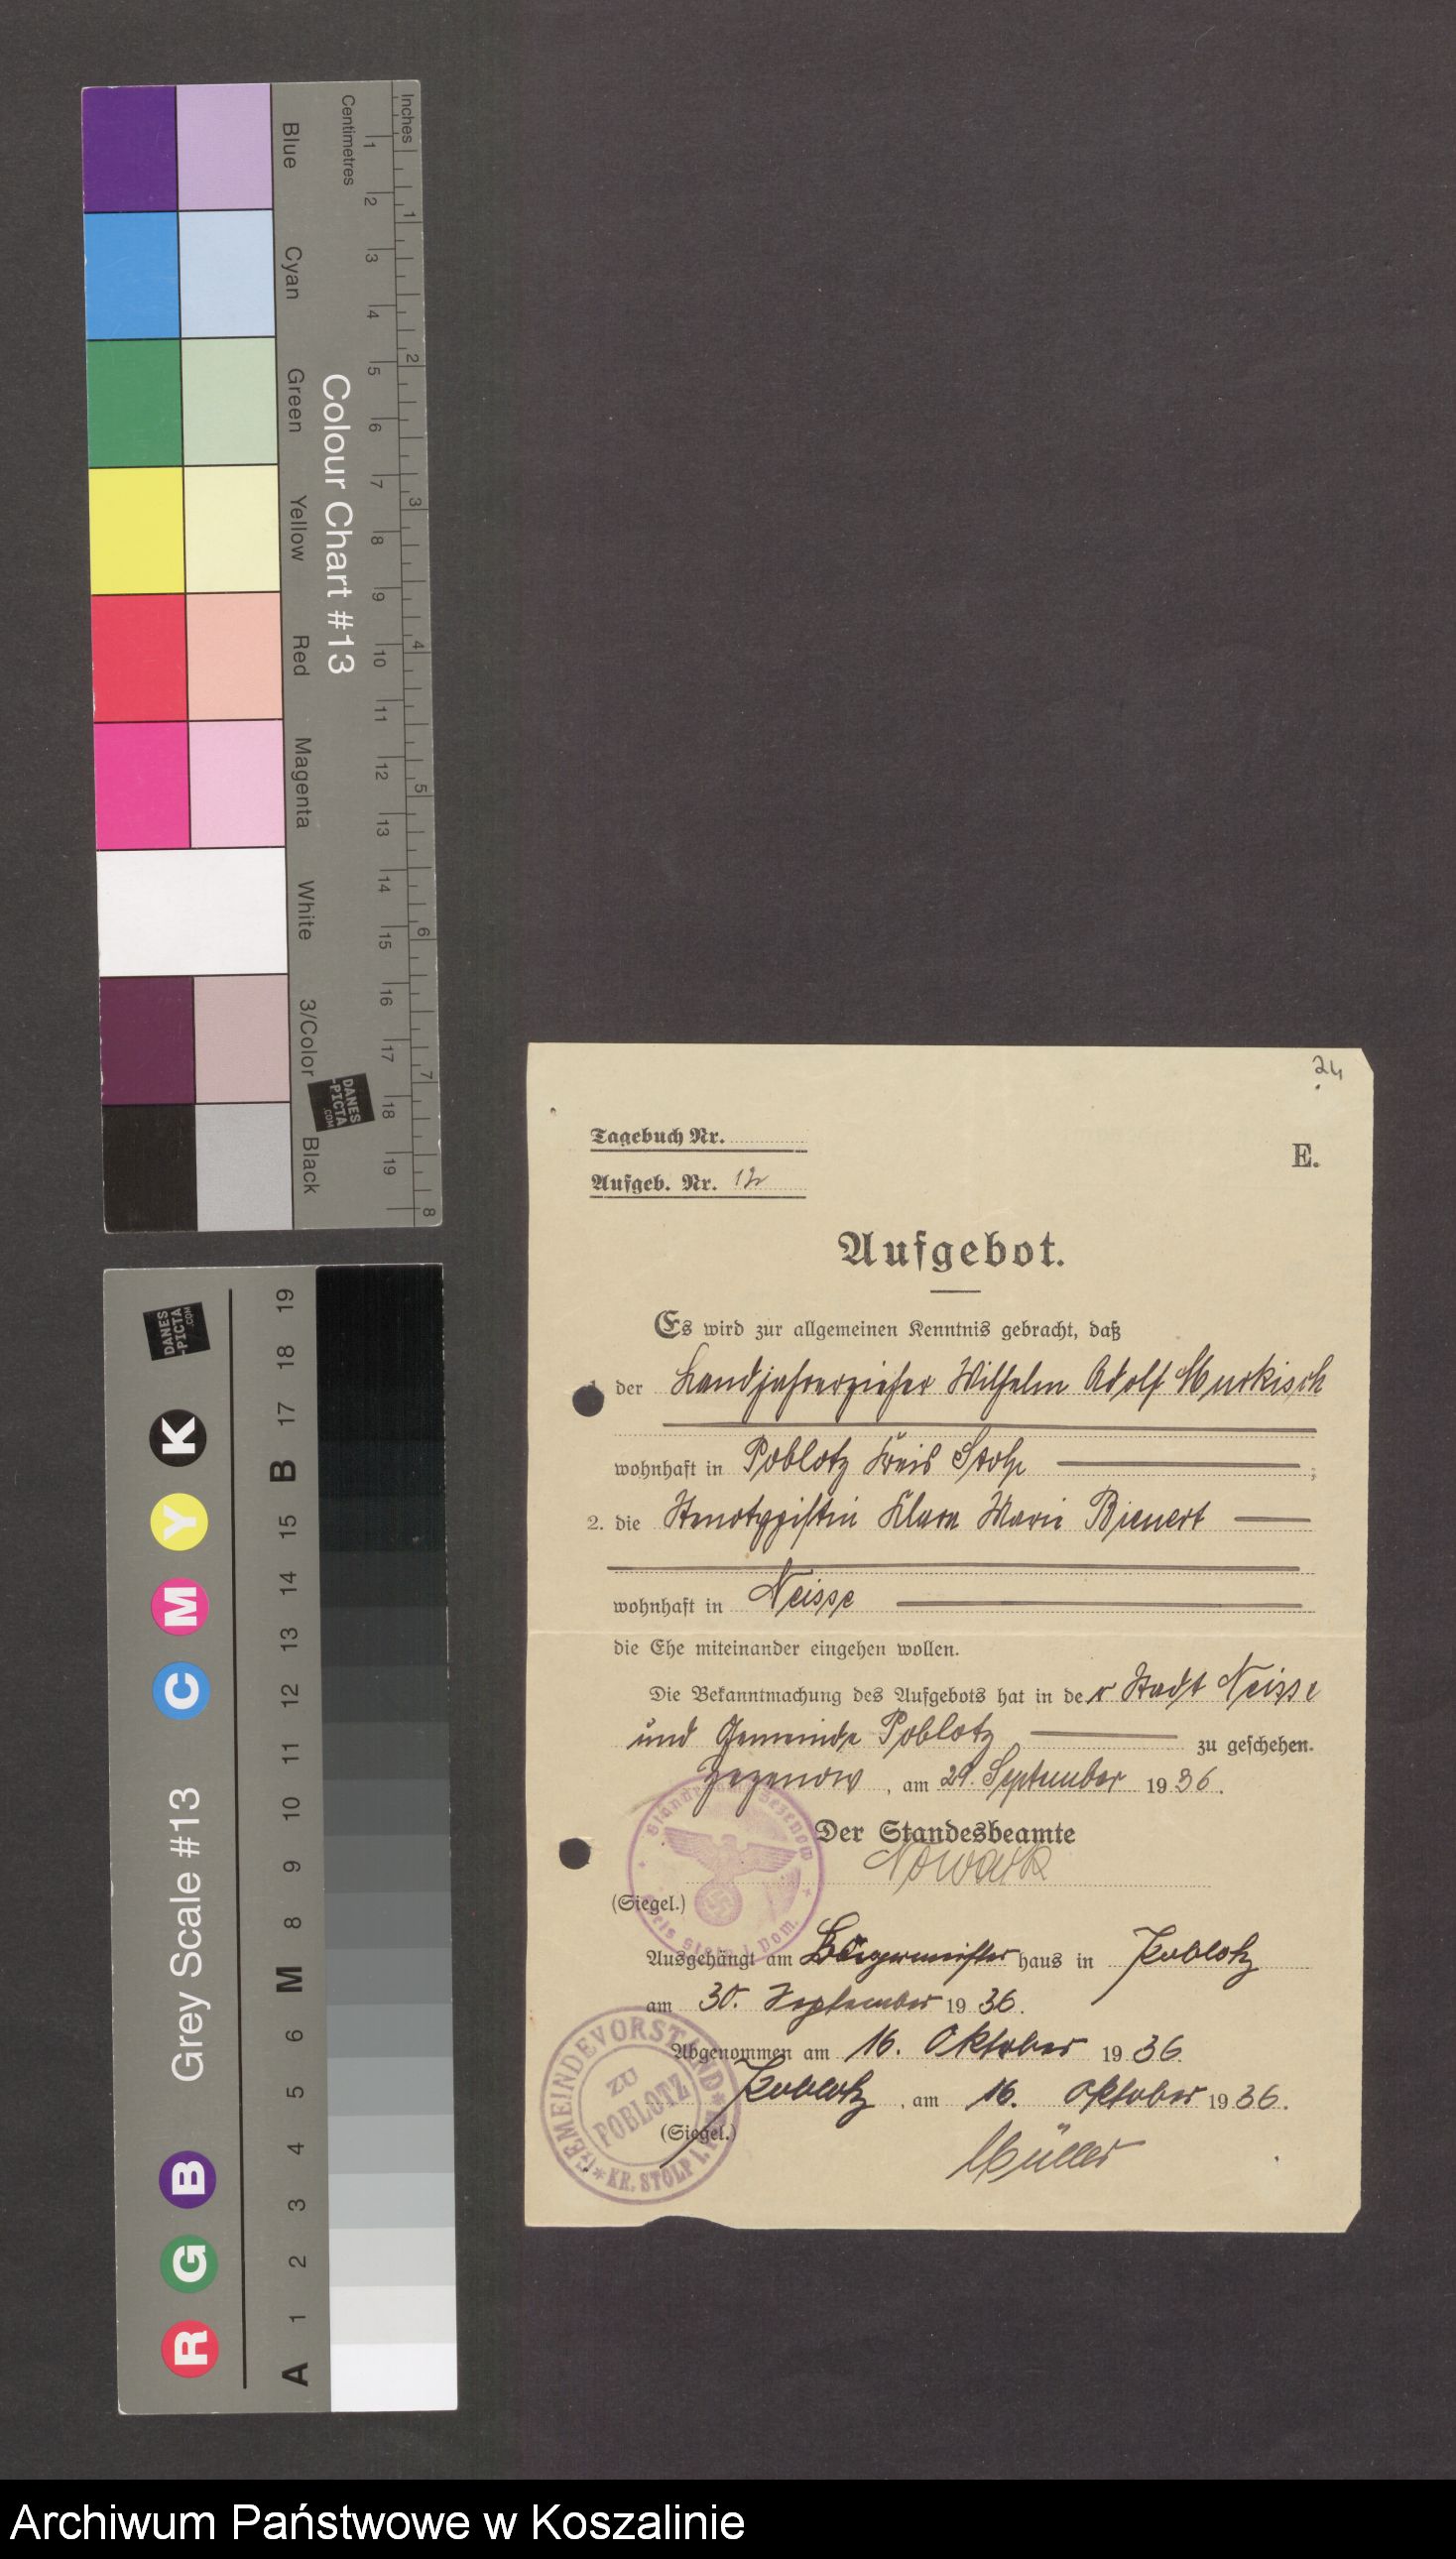 Inches
Centimetres
1 2 3 4 5 6 7 8 9 10 11 12 13 14 15 16 17 18 19
1 2 3 4 5 6 7 8
Colour Chart #13
Blue
Cyan
Green
Yellow
Red
Magenta
White
3/Color
Black
DANES
-PICTA
.COM
Grey Scale #13
DANES
-PICTA
.COM
R G B C M Y K
A 1 2 3 4 5 6 M 8 9 10 11 12 13 14 15 B 17 18 19
24
Tagebuch Nr.
E.
Aufgeb. Nr. 12
Aufgebot.
Es wird zur allgemeinen Kenntnis gebracht, daß
der Landjahrerzieher Wilhelm Adolf Murkisch
wohnhaft in Poblotz Kreis Stolp ;
2. die Stenotypistin Klara Marie Bienert
wohnhaft in Neisse
die Ehe miteinander eingehen wollen.
Die Bekanntmachung des Aufgebots hat in der Stadt Neisse
und Gemeinde Poblotz zu geschehen.
Zezenow, am 29. September 1936.
Der Standesbeamte
Nowack
(Siegel.)
Ausgehängt am Bürgermeisterhaus in Poblotz
am 30. September 1936.
Abgenommen am 16. Oktober 1936.
Poblotz, am 16. Oktober 1936.
(Siegel.)
Müller
GEMEINDEVORSTAND
ZU
POBLOTZ
KR. STOLP i.
Archiwum Państwowe w Koszalinie